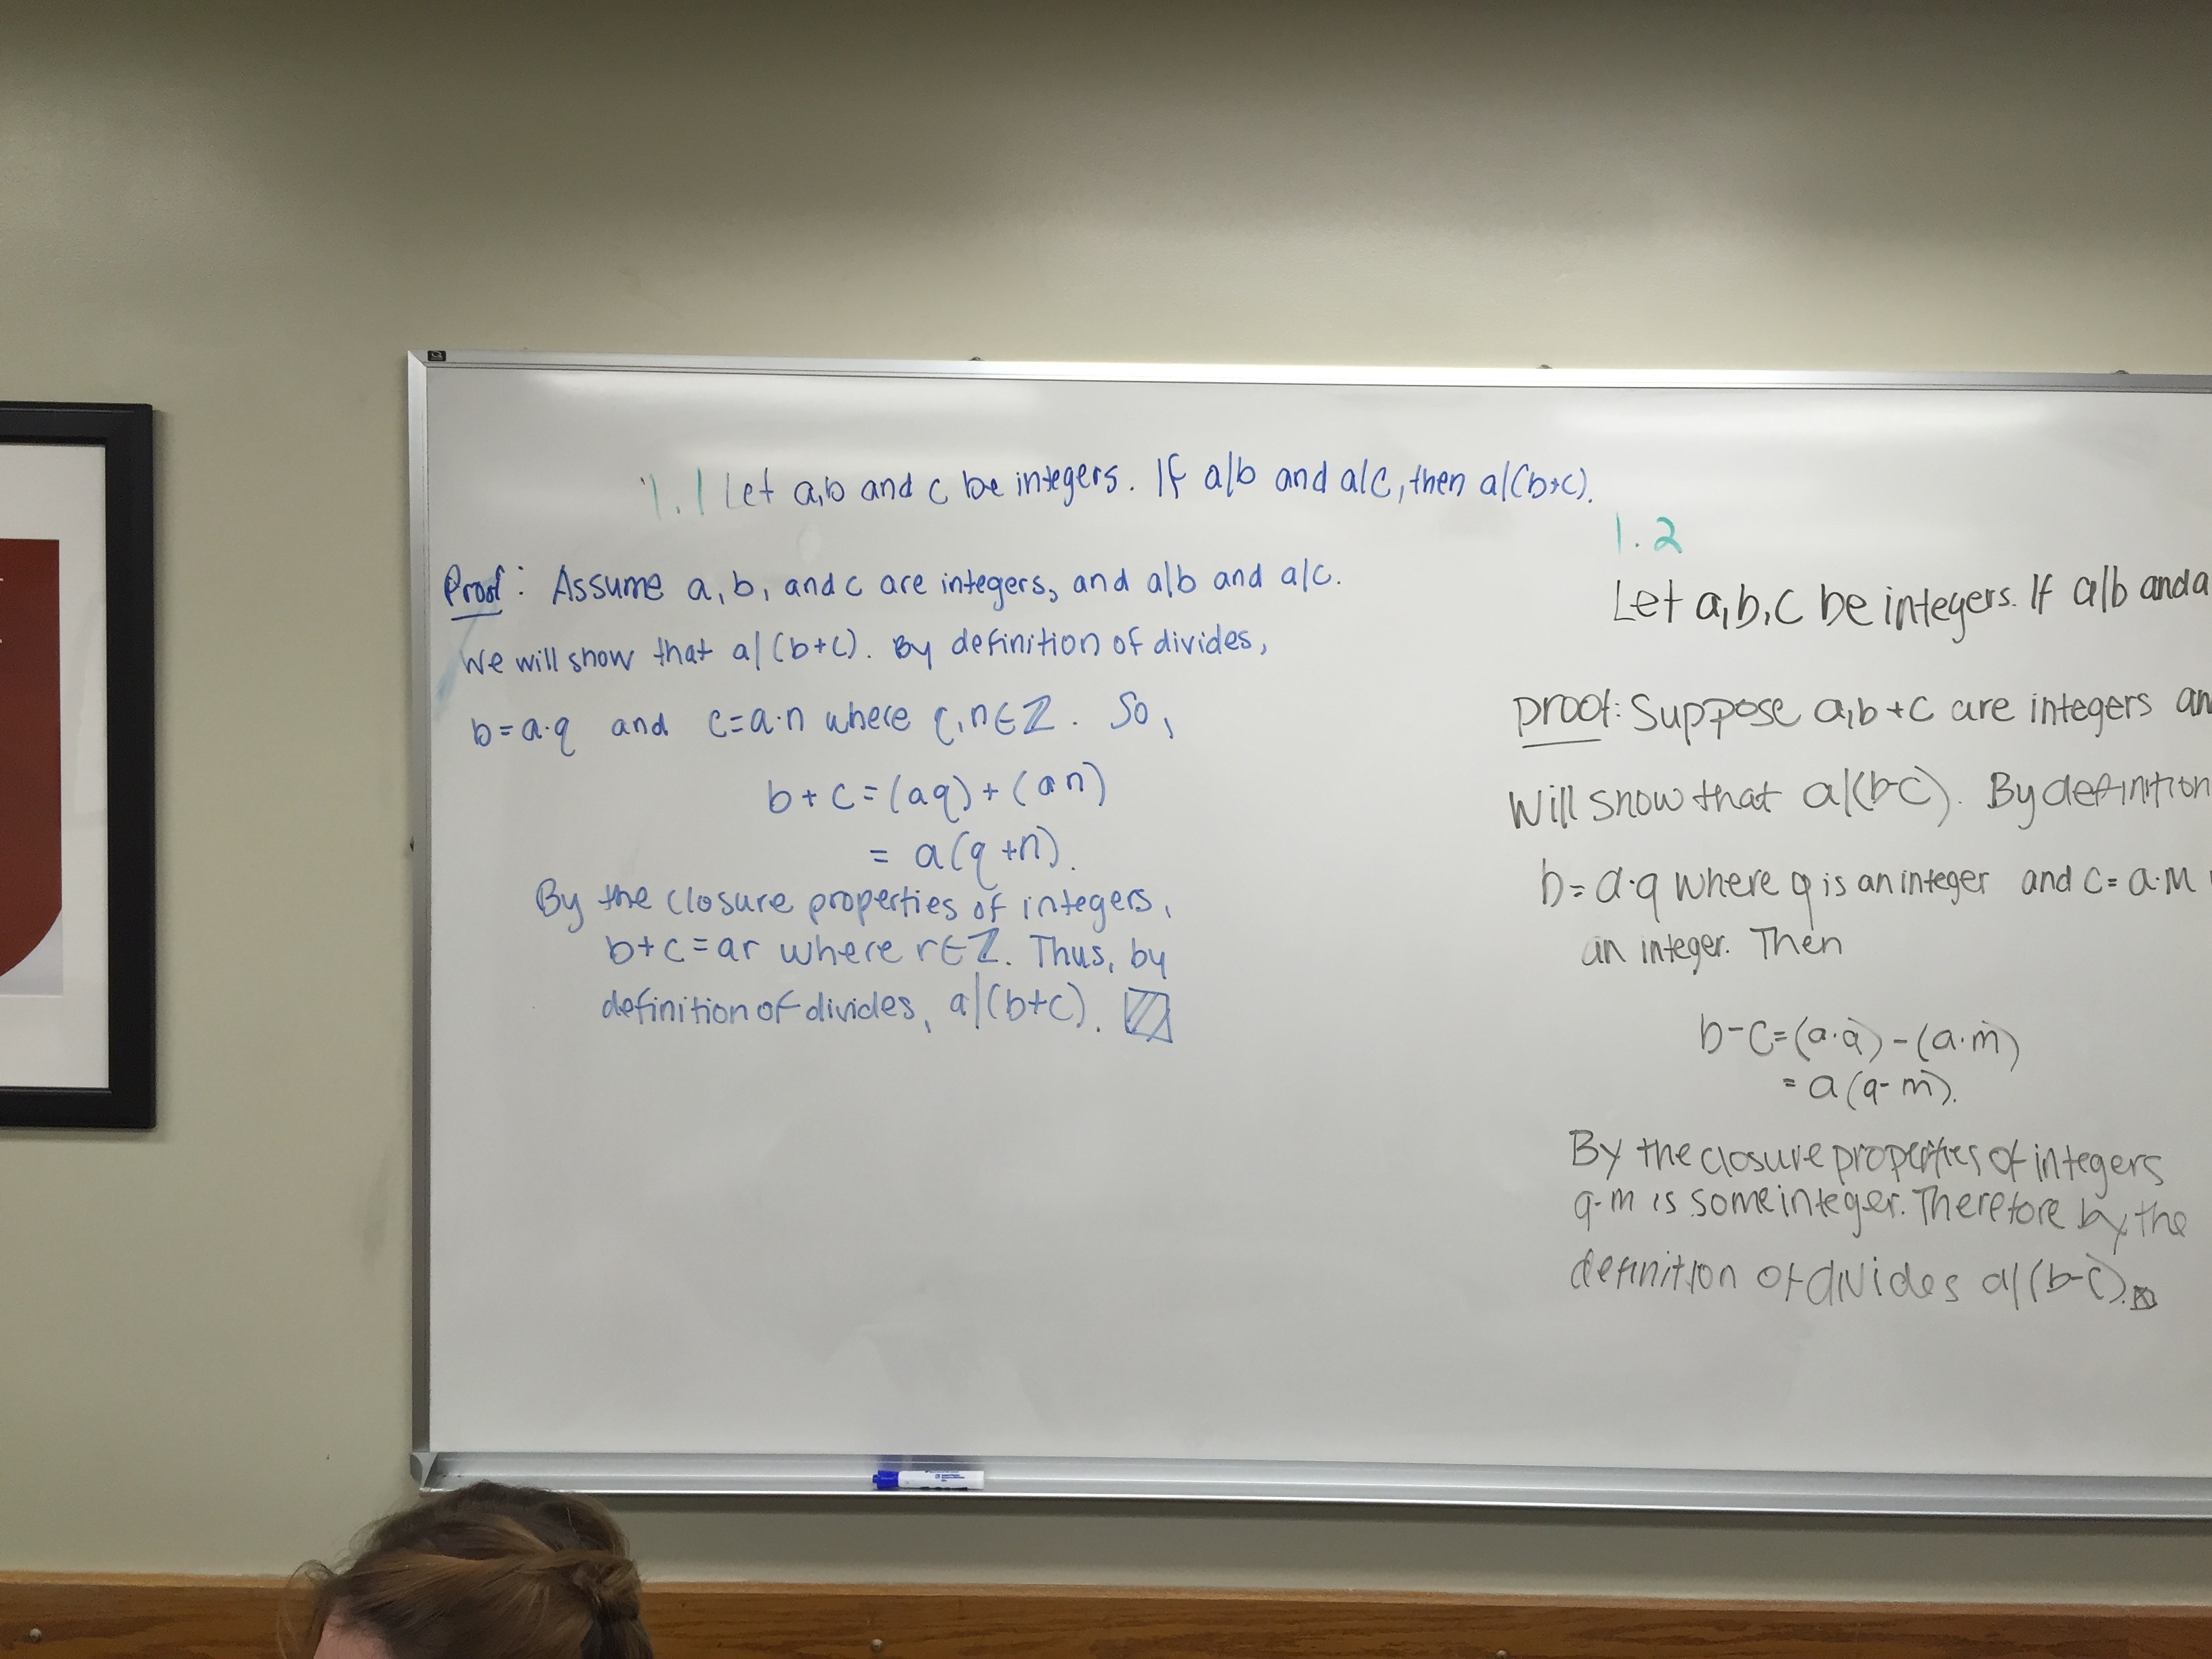 1.1 Let a,b and c be integers. If a|b and a|c, then a|(b+c).
Proof: Assume a, b, and c are integers, and a|b and a|c.
We will show that a|(b+c). By definition of divides,
b=a·q and c=a·n where q,n∈ℤ. So,
b+c=(aq)+(an)
= a(q+n).
By the closure properties of integers,
b+c=ar where r∈ℤ. Thus, by
definition of divides, a|(b+c).
1.2
Let a,b,c be integers. If a|b and a
proof: Suppose a,b+c are integers an
Will show that a|(b-c). By definition
b=a·q where q is an integer and c=a·m
an integer. Then
b-c=(a·q)-(a·m)
= a(q-m).
By the closure properties of integers
q-m is some integer. Therefore by the
definition of divides a|(b-c).